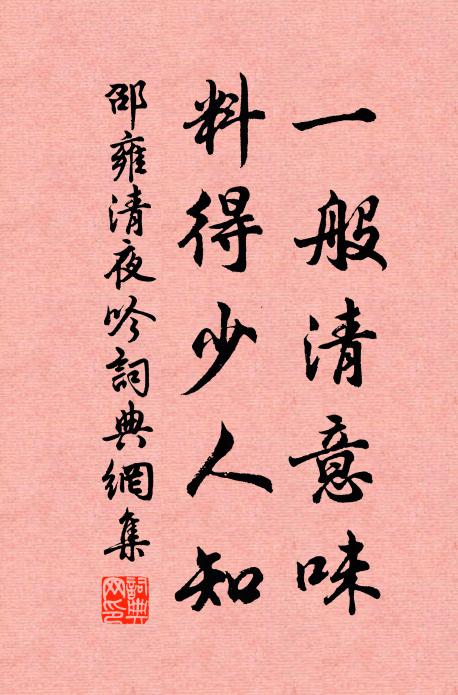 一般清意味
料得少人知
邵雍清夜吟詞典網集
詞典
网印